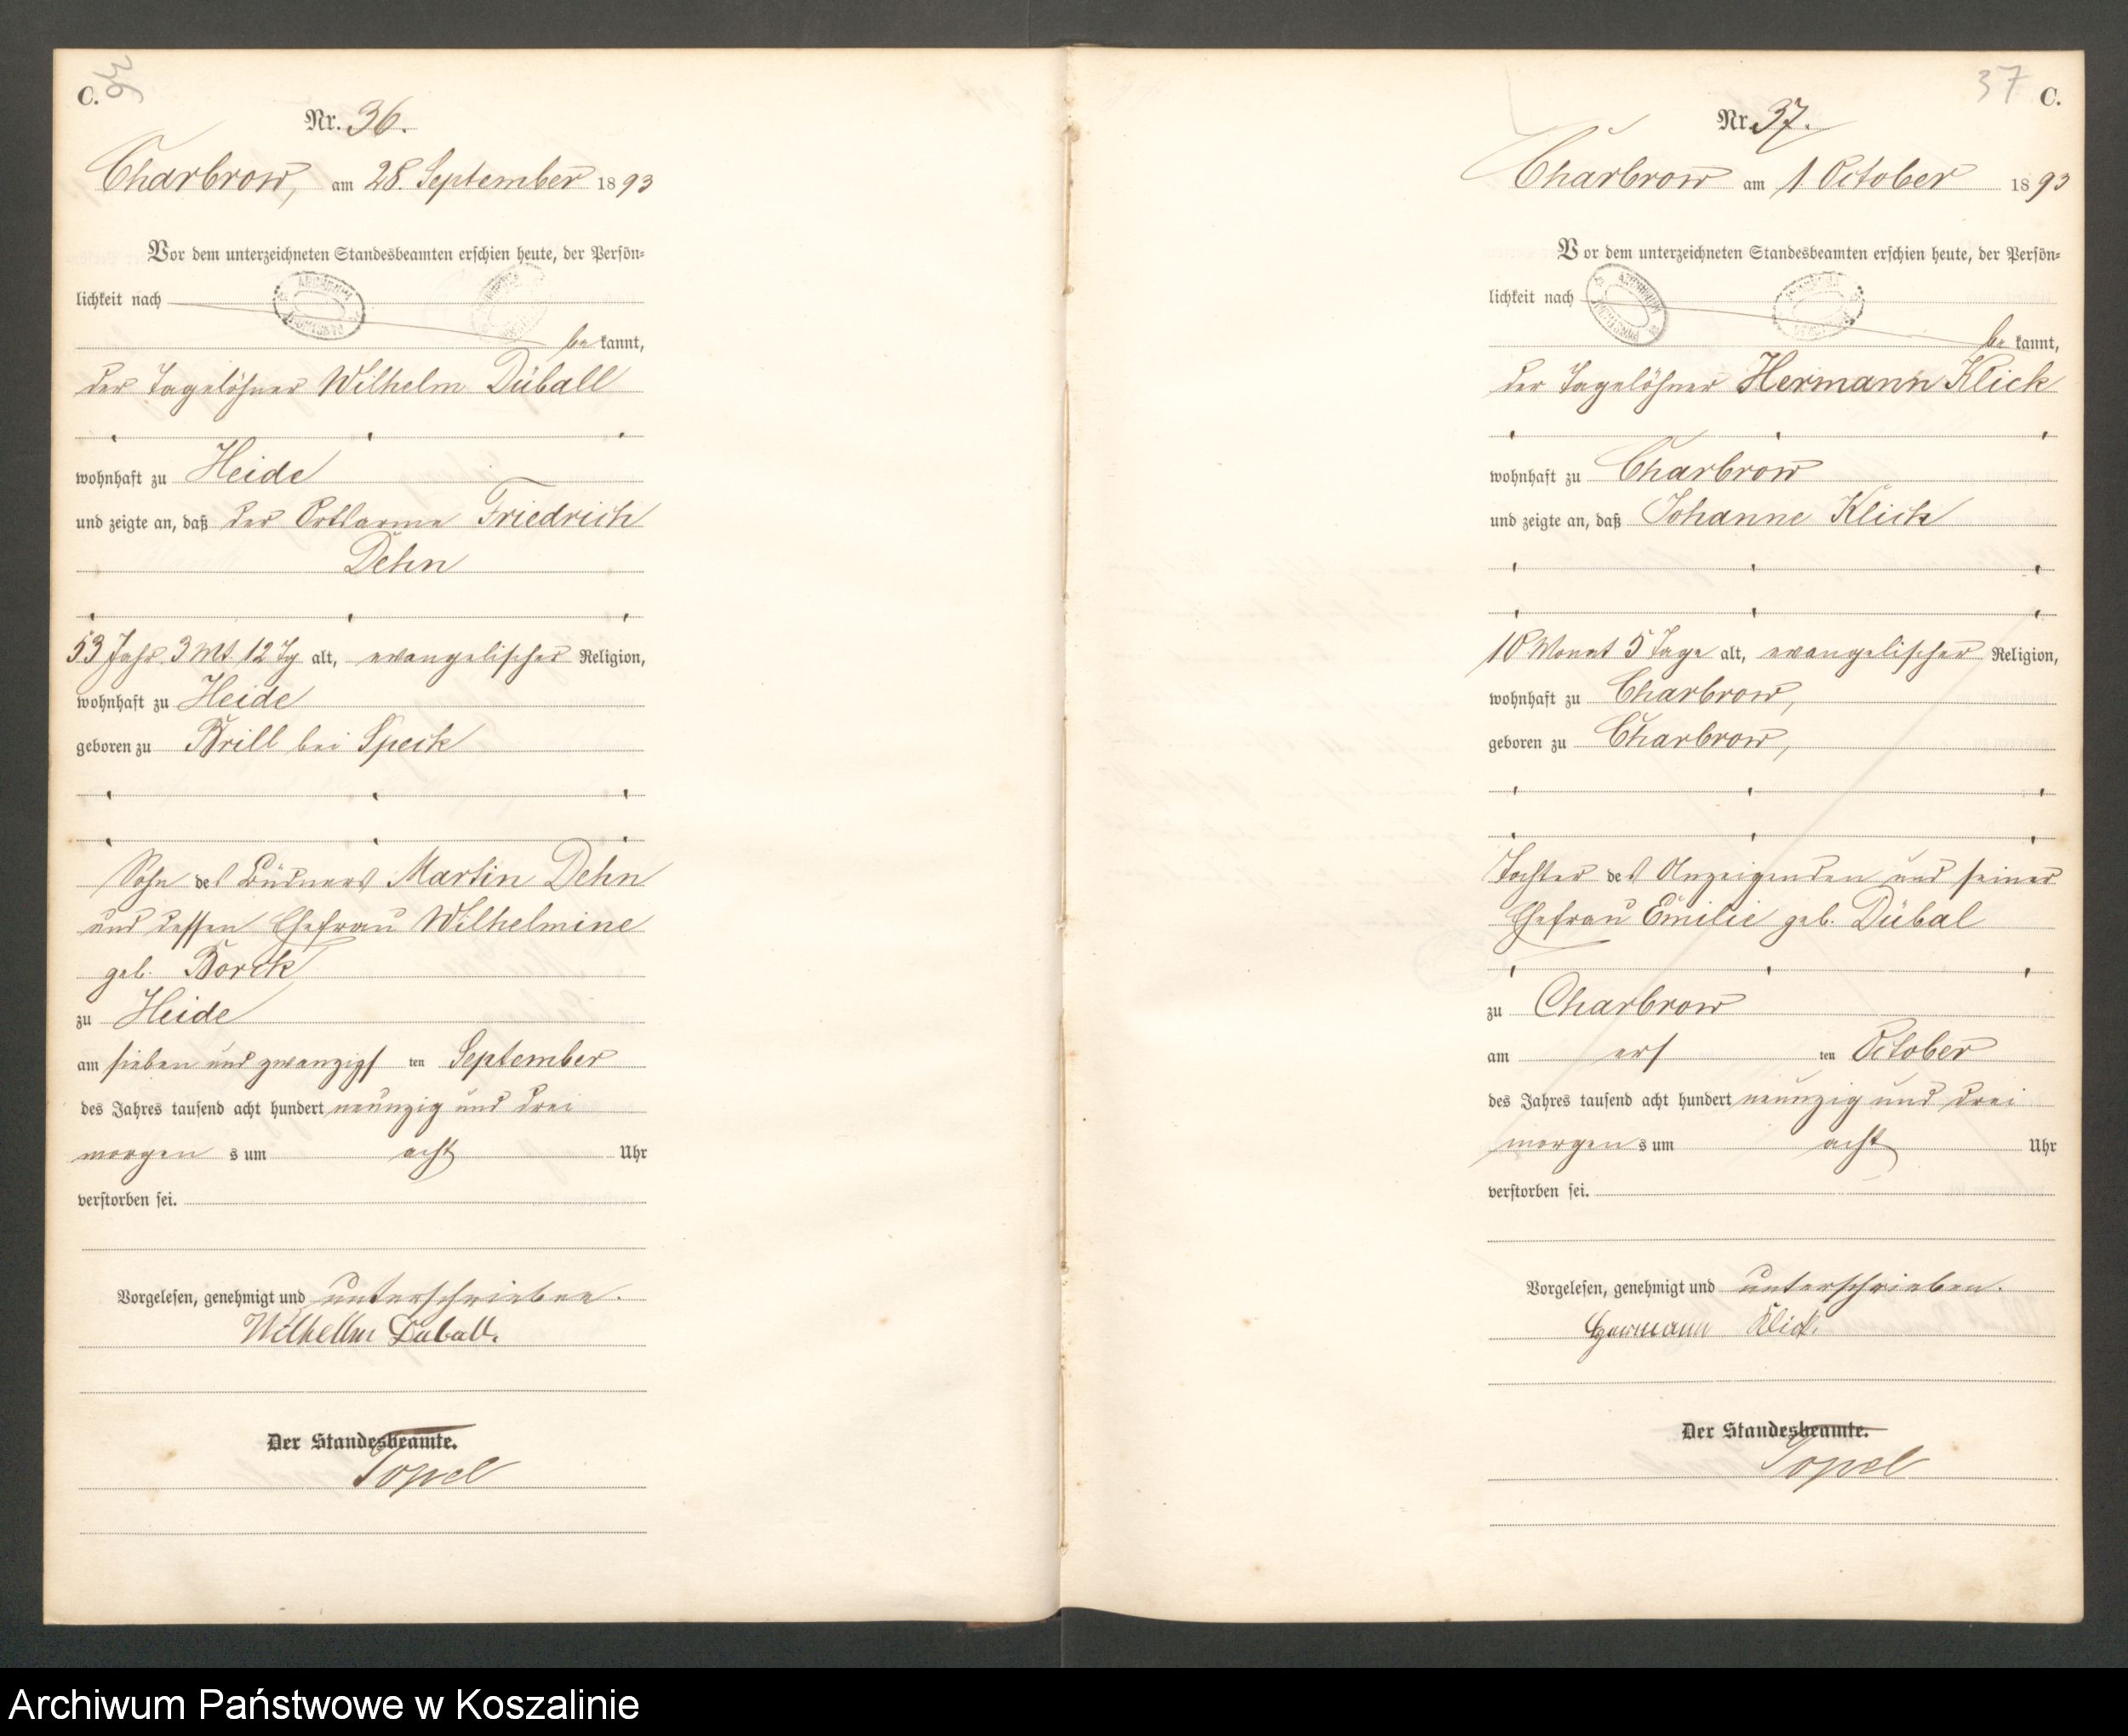 C.
36
Nr. 36.
Charbrow, am 28. September 1893
Vor dem unterzeichneten Standesbeamten erschien heute, der Persön-
lichkeit nach
bekannt,
der Tagelöhner Wilhelm Düball
wohnhaft zu Heide
und zeigte an, daß der Ortsarme Friedrich
Dehn
53 Jahr 3 Mt. 12 Tg alt, evangelischer Religion,
wohnhaft zu Heide
geboren zu Brill bei Speck
Sohn des Büdners Martin Dehn
und dessen Ehefrau Wilhelmine
geb. Borck
zu Heide
am sieben und zwanzigsten September
des Jahres tausend acht hundert neunzig und drei
morgens um acht Uhr
verstorben sei.
Vorgelesen, genehmigt und unterschrieben.
Wilhellm Duball.
Der Standesbeamte.
Topel
37 C.
Nr. 37.
Charbrow am 1 October 1893
Vor dem unterzeichneten Standesbeamten erschien heute, der Persön-
lichkeit nach
bekannt,
der Tagelöhner Hermann Klick
wohnhaft zu Charbrow
und zeigte an, daß Johanne Klick
10 Monat 5 Tage alt, evangelischer Religion,
wohnhaft zu Charbrow,
geboren zu Charbrow,
Tochter des Anzeigenden und seiner
Ehefrau Emilie geb. Dübal
zu Charbrow
am ersten October
des Jahres tausend acht hundert neunzig und drei
morgens um acht Uhr
verstorben sei.
Vorgelesen, genehmigt und unterschrieben.
Hermann Klick.
Der Standesbeamte.
Topel
Archiwum Państwowe w Koszalinie